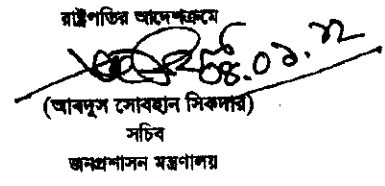 রাষ্ট্রপতির আদেশক্রমে
০৪.০১.১২
(আবদুস সোবহান সিকদার)
সচিব
জনপ্রশাসন মন্ত্রণালয়